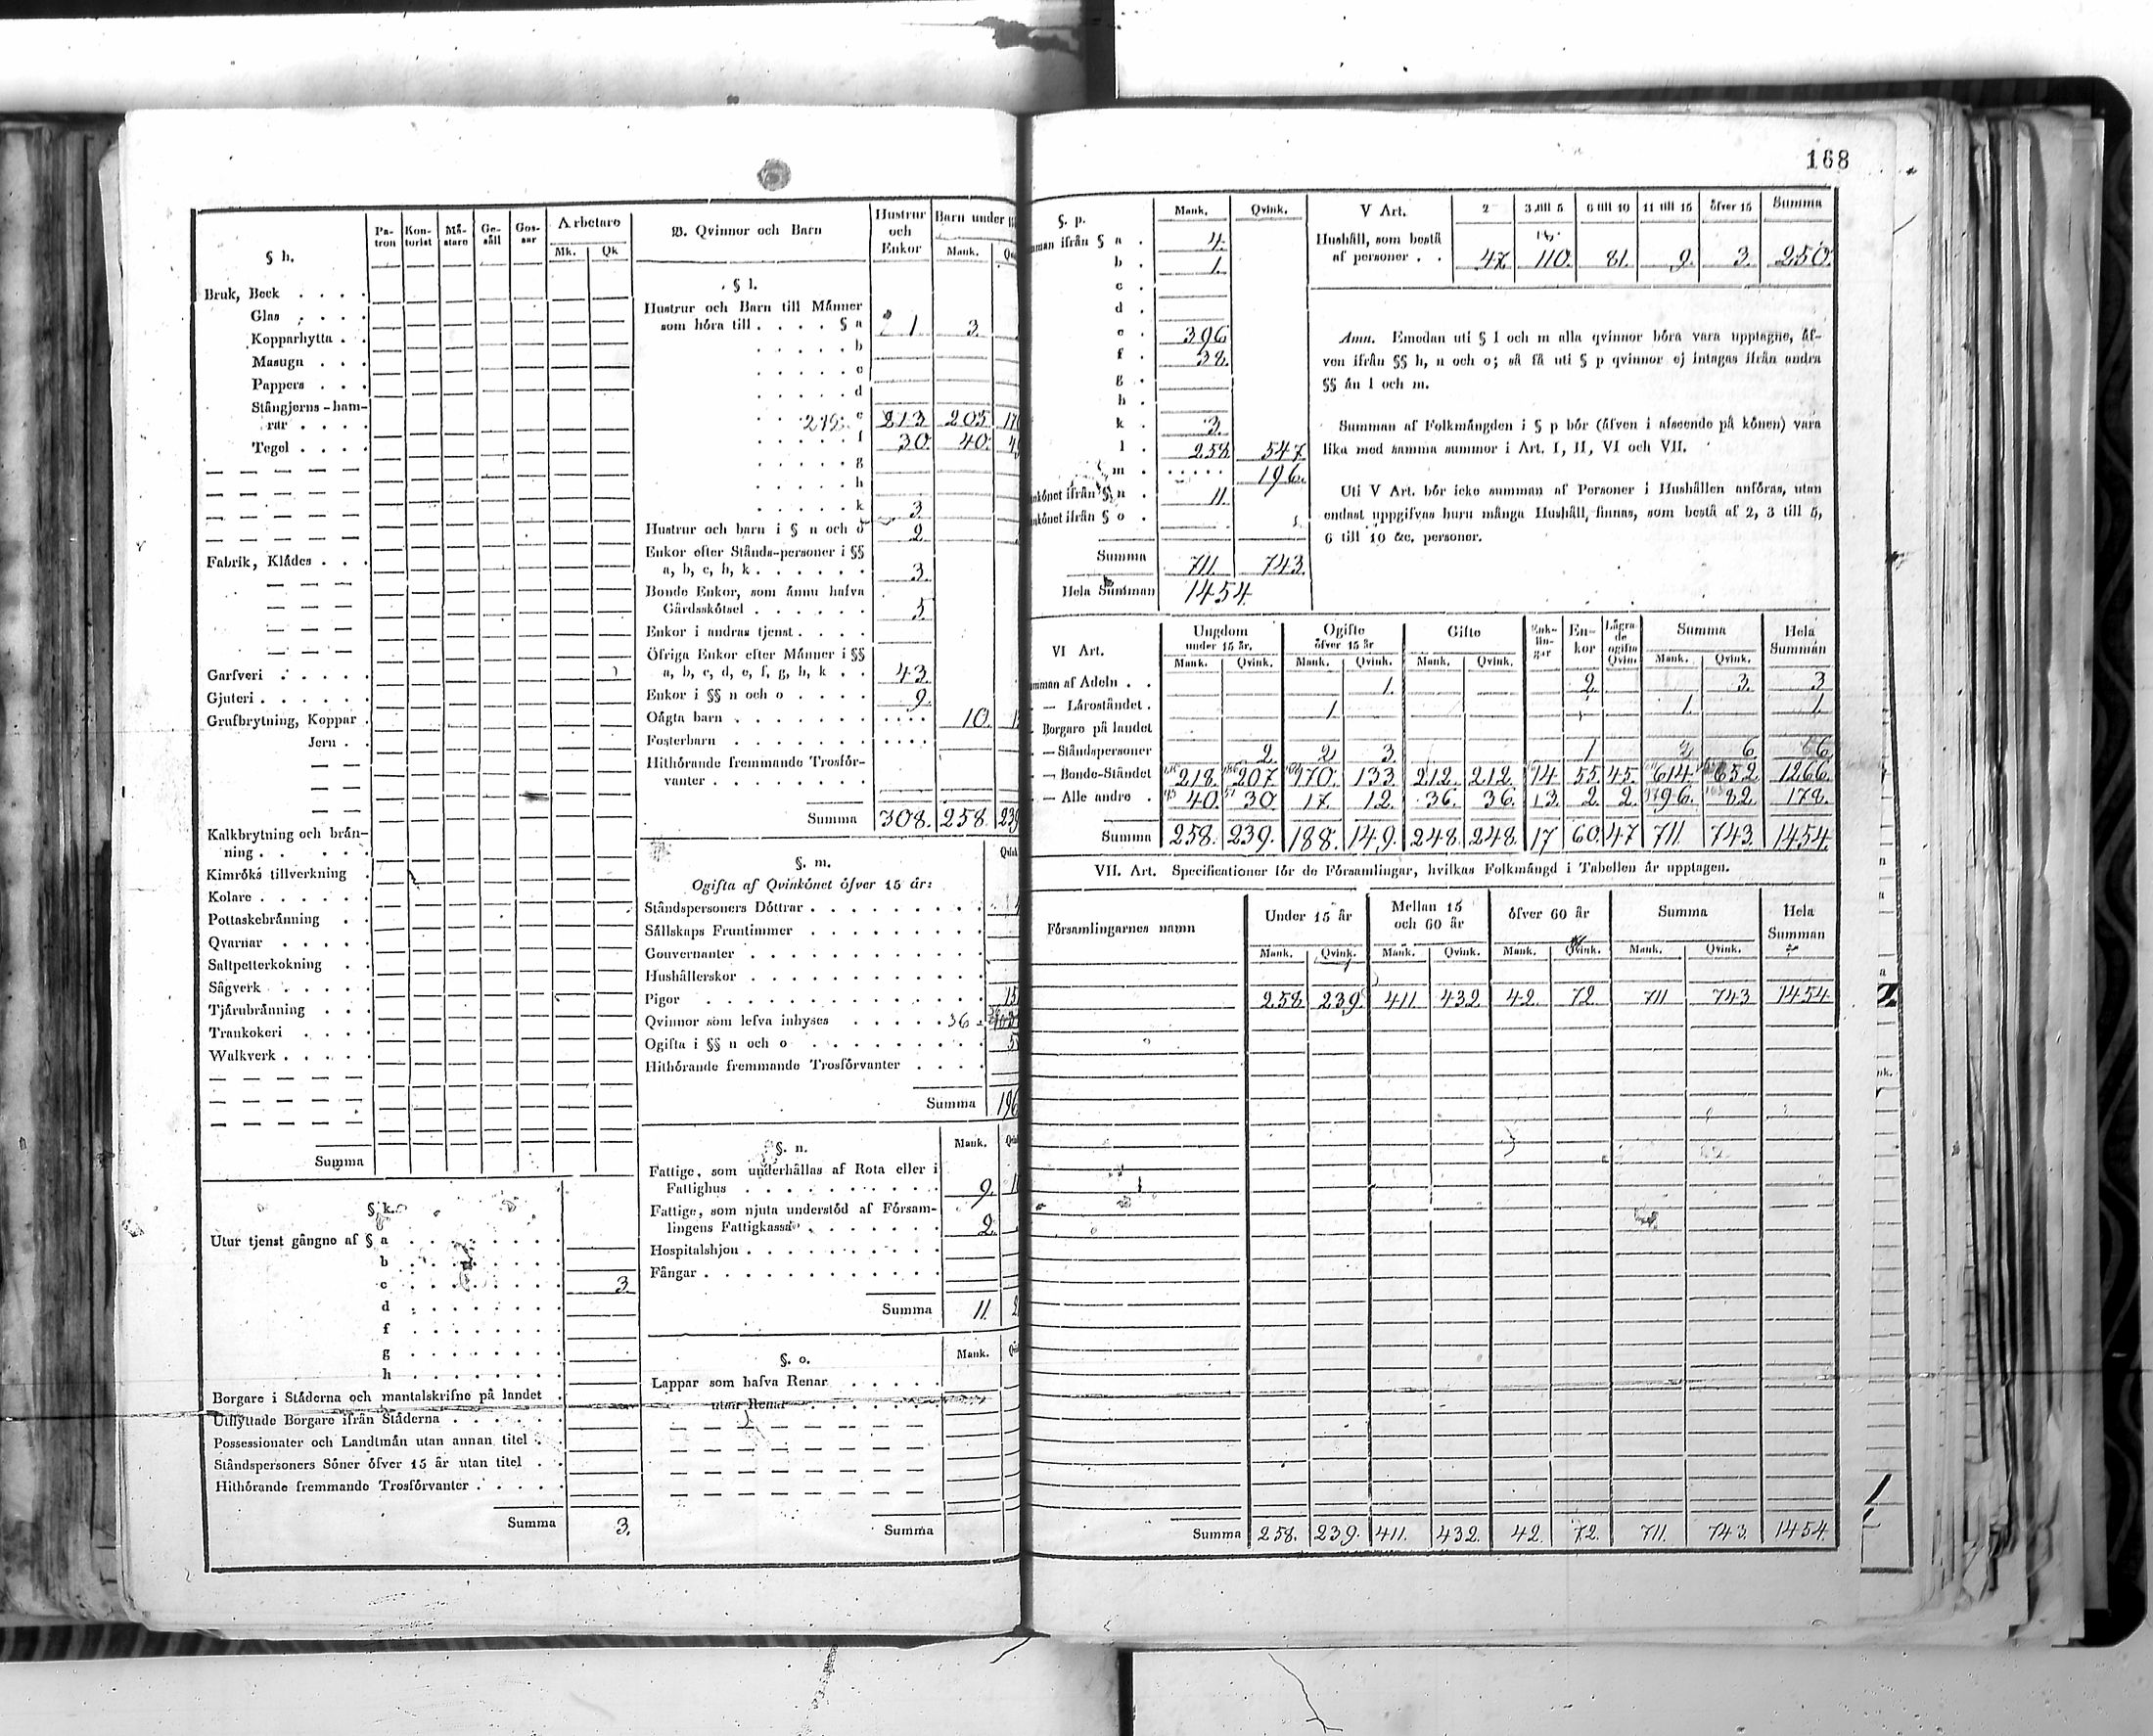 168
§ h.
Pa-
tron
Kon-
torist
Mä-
stare
Ge-
säll
Gos-
sar
Arbetare
Mk. Qk
Bruk, Beck . . . .
Glas . . . .
Kopparhytta . .
Masugn . . .
Pappers . . .
Stångjerns-ham-
rar . . . .
Tegel . . . .
Fabrik, Klådes . . .
Garfveri . . . . .
Gjuteri . . . . .
Grufbrytning, Koppar .
Jern . .
Kalkbrytning och brån-
ning . . . . .
Kimröks tillverkning .
Kolare . . . . .
Pottaskebrånning . .
Qvarnar . . . . .
Saltpetterkokning . .
Sågverk . . . . .
Tjårubrånning . . .
Trankokeri . . . .
Walkverk . . . . .
Summa
§. k.
Utur tjenst gångne af § a . . . . . . .
b . . . . . . .
c . . . . . . . 3.
d . . . . . . .
f . . . . . . .
g . . . . . . .
h . . . . . . .
Borgare i Ståderna och mantalskrifne på landet .
Utflyttade Borgare ifrån Ståderna . . . . .
Possessionater och Landtmån utan annan titel . .
Ståndspersoners Söner öfver 15 år utan titel . .
Hithörande fremmande Trosförvanter . . . . .
Summa 3.
D. Qvinnor och Barn
Hustrur
och
Enkor
Barn under
Mank.
§ l.
Hustrur och Barn till Männer
som höra till . . . . § a 1 3.
. . . . . b
. . . . . c
. . . . . d
. . e 213 205
. . . . . f 30. 40.
. . . . . g
. . . . . h
. . . . . k 3.
Hustrur och barn i § n och o 2
Enkor efter Stånds-personer i §§
a, b, c, h, k . . . . . . 3.
Bonde Enkor, som ännu hafva
Gårdsskötsel . . . . . . 5
Enkor i andras tjenst . . . .
Öfriga Enkor efter Männer i §§
a, b, c, d, e, f, g, h, k . . 43.
Enkor i §§ n och o . . . . 9.
Oågta barn . . . . . . . . . . . 10.
Fosterbarn . . . . . . . . . . .
Hithörande fremmande Trosför-
vanter . . . . . . .
Summa 308. 258. 239
§. m.
Ogifta af Qvinkönet öfver 15 år:
Ståndspersoners Döttrar . . . . . . . . .
Sällskaps Fruntimmer . . . . . . . . .
Gouvernanter . . . . . . . . . . . .
Hushållerskor . . . . . . . . . . . .
Pigor . . . . . . . . . . . . . .
Qvinnor som lefva inhyses . . . . . 36
Ogifta i §§ n och o . . . . . . . . .
Hithörande fremmande Trosförvanter . . . .
Summa 196
§. n.
Mank.
Fattige, som underhållas af Rota eller i
Fattighus . . . . . . . . . . 9.
Fattige, som njuta understöd af Försam-
lingens Fattigkassa . . . . . . . 2.
Hospitalshjon . . . . . . . . . .
Fångar . . . . . . . . . . . .
Summa 11.
§. o.
Mank.
Lappar som hafva Renar . . . . .
utan Renar . . . . .
Summa
§. p.
Mank. Qvink.
ifrån § a . 4.
b . 1.
c .
d .
e . 396
f . 38.
g .
h .
k . 3.
l . 258 547
m . . . . . . 196.
ifrån § n . 11.
ifrån § o .
Summa 711. 743.
Hela Summan 1454.
V Art. 2 3 till 5 6 till 10 11 till 15 öfver 15 Summa
Hushåll, som bestå
af personer . . 47 110. 81. 9. 3. 250.
Anm. Emedan uti § l och m alla qvinnor böra vara upptagne, äf-
ven ifrån §§ h, n och o; så få uti § p qvinnor ej intagas ifrån andra
§§ än l och m.
Summan af Folkmängden i § p bör (äfven i afseende på könen) vara
lika med samma summor i Art. I, II, VI och VII.
Uti V Art. bör icke summan af Personer i Hushållen anföras, utan
endast uppgifvas huru många Hushåll, finnas, som bestå af 2, 3 till 5,
6 till 10 &c. personer.
VI Art.
Ungdom
under 15 år.
Ogifte
öfver 15 år
Gifte
Enk-
lin-
gar
En-
kor
Lägra-
de
ogifta
Qvin.
Summa
Hela
Summan
Mank. Qvink. Mank. Qvink. Mank. Qvink. Mank. Qvink.
af Adeln . . 1. 2. 3. 3
— Läroståndet . 1. 1. 1.
Borgare på landet
— Ståndspersoner 2 2 3. 1 6
— Bonde-Ståndet 218. 207 170. 133 212. 212. 14 55. 45. 614 652 1266.
— Alle andre . 40. 30. 17. 12. 36. 36. 3. 2. 2. 96. 82. 178.
Summa 258. 239. 188. 149. 248. 248. 17 60. 47 711. 743. 1454.
VII. Art. Specificationer för de Församlingar, hvilkas Folkmängd i Tabellen är upptagen.
Församlingarnes namn
Under 15 år
Mellan 15
och 60 år
öfver 60 år
Summa
Hela
Summan
Mank. Qvink. Mank. Qvink. Mank. Qvink. Mank. Qvink.
258. 239. 411. 432. 42. 72. 711 743 1454
Summa 258. 239. 411. 432. 42. 72. 711. 743. 1454.